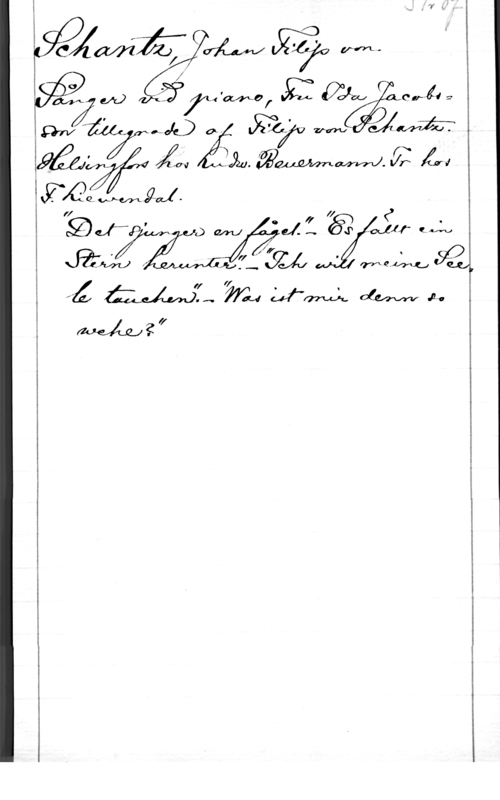 Schantz, Johan Filip von.
Sånger vid piano, Fru Ida Jacobs=
son tillegnade af Filip von Schantz.
Helsingfors hos Ludw. Beuermann. Tr hos
F. Liewendal.
"Det sjunger en fågel." - "Es fällt ein
Stern herunter." - "Ich will meine See,
le tauchen." - "Was ist mir denn so
wehe?"